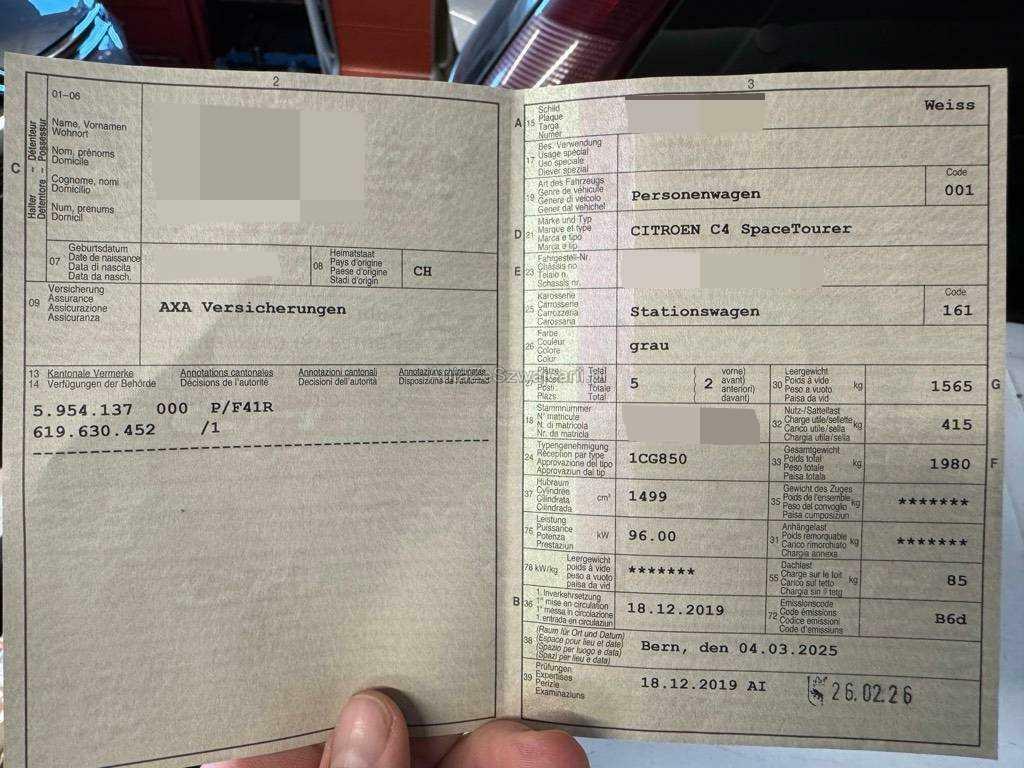 2
01–06
Halter – Détenteur
Detentore – Possessur
C
Name, Vornamen
Wohnort
Nom, prénoms
Domicile
Cognome, nomi
Domicilio
Num, prenums
Domicil
07
Geburtsdatum
Date de naissance
Data di nascita
Data da nasch.
08
Heimatstaat
Pays d'origine
Paese d'origine
Stadi d'origin
CH
09
Versicherung
Assurance
Assicurazione
Assicuranza
AXA Versicherungen
13 Kantonale Vermerke Annotations cantonales Annotazioni cantonali Annotaziuns chantunalas
14 Verfügungen der Behörde Décisions de l'autorité Decisioni dell'autorità Disposiziuns da l'autoritad
5.954.137 000 P/F41R
619.630.452 /1
3
A 15
Schild
Plaque
Targa
Numer
Weiss
17
Bes. Verwendung
Usage spécial
Uso speciale
Diever spezial
19
Art des Fahrzeugs
Genre de véhicule
Genere di veicolo
Gener dal vehichel
Personenwagen
Code
001
D 21
Marke und Typ
Marque et type
Marca e tipo
Marca e tip
CITROEN C4 SpaceTourer
E 23
Fahrgestell-Nr.
Châssis no
Telaio n.
Schassis nr.
25
Karosserie
Carrosserie
Carrozzeria
Carossaria
Stationswagen
Code
161
26
Farbe
Couleur
Colore
Colur
grau
Plätze Total
Places Total
Posti Totale
Plazs Total
5
( 2
vorne)
avant)
anteriori)
davant)
30
Leergewicht
Poids à vide
Peso a vuoto
Paisa da vid
kg
1565
G
18
Stammnummer
N° matricule
N. di matricola
Nr. da matricla
32
Nutz-/Sattellast
Charge utile/sellette
Carico utile/sella
Chargia utila/sella
kg
415
24
Typengenehmigung
Réception par type
Approvazione del tipo
Approvaziun dal tip
1CG850
33
Gesamtgewicht
Poids total
Peso totale
Paisa totala
kg
1980
F
37
Hubraum
Cylindrée
Cilindrata
Cilindrada
cm³
1499
35
Gewicht des Zuges
Poids de l'ensemble
Peso del convoglio
Paisa cumposiziun
kg
*******
76
Leistung
Puissance
Potenza
Prestaziun
kW
96.00
31
Anhängelast
Poids remorquable
Carico rimorchiato
Chargia annexa
kg
*******
78 kW/kg
Leergewicht
poids à vide
peso a vuoto
paisa da vid
*******
55
Dachlast
Charge sur le toit
Carico sul tetto
Chargia sin il tetg
kg
85
B 36
1. Inverkehrsetzung
1re mise en circulation
1a messa in circolazione
1. entrada en circulaziun
18.12.2019
72
Emissionscode
Code émissions
Codice emissioni
Code d'emissiuns
B6d
38
(Raum für Ort und Datum)
(Espace pour lieu et date)
(Spazio per luogo e data)
(Spazi per lieu e data)
Bern, den 04.03.2025
39
Prüfungen
Expertises
Perizie
Examinaziuns
18.12.2019 AI
26.02.26